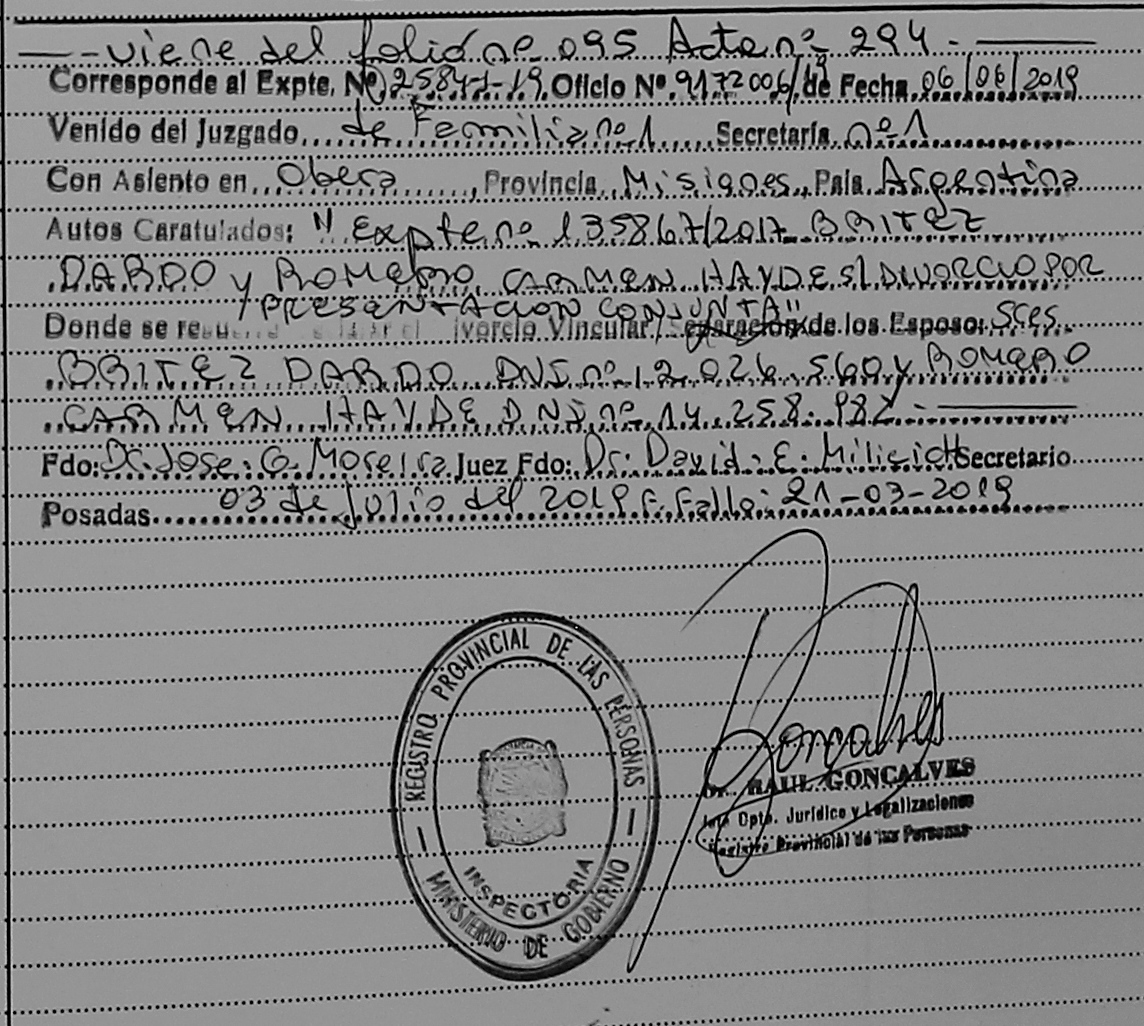 — - viene del folio nº 095 Acta nº 294 - —
Corresponde al Expte. Nº 2584-J-19 Oficio Nº 9172006/19 de Fecha 06/06/2019
Venido del Juzgado de Familia nº 1 Secretaría nº 1
Con Asiento en Obera, Provincia Misiones País Argentina
Autos Caratulados: "Expte nº 135867/2017 BRITEZ
DARDO y ROMERO CARMEN HAYDE S/ DIVORCIO POR
PRESENTACION CONJUNTA"
Donde se ivorcio Vincular / Separación de los Esposo: Sres.
BRITEZ DARDO DNI nº 12.026.560 y ROMERO
CARMEN HAYDE DNI nº 14.258.982 - —
Fdo: Dr. Jose G. Moreira Juez Fdo: Dr. David E. Milicich Secretario
Posadas 03 de julio del 2019 F. Fallo: 21-03-2019
REGISTRO PROVINCIAL DE LAS PERSONAS
INSPECTORIA
MINISTERIO DE GOBIERNO
Goncalves
Dr. RAUL GONCALVES
Jefe Dpto. Jurídico y Legalizaciones
Registro Provincial de las Personas